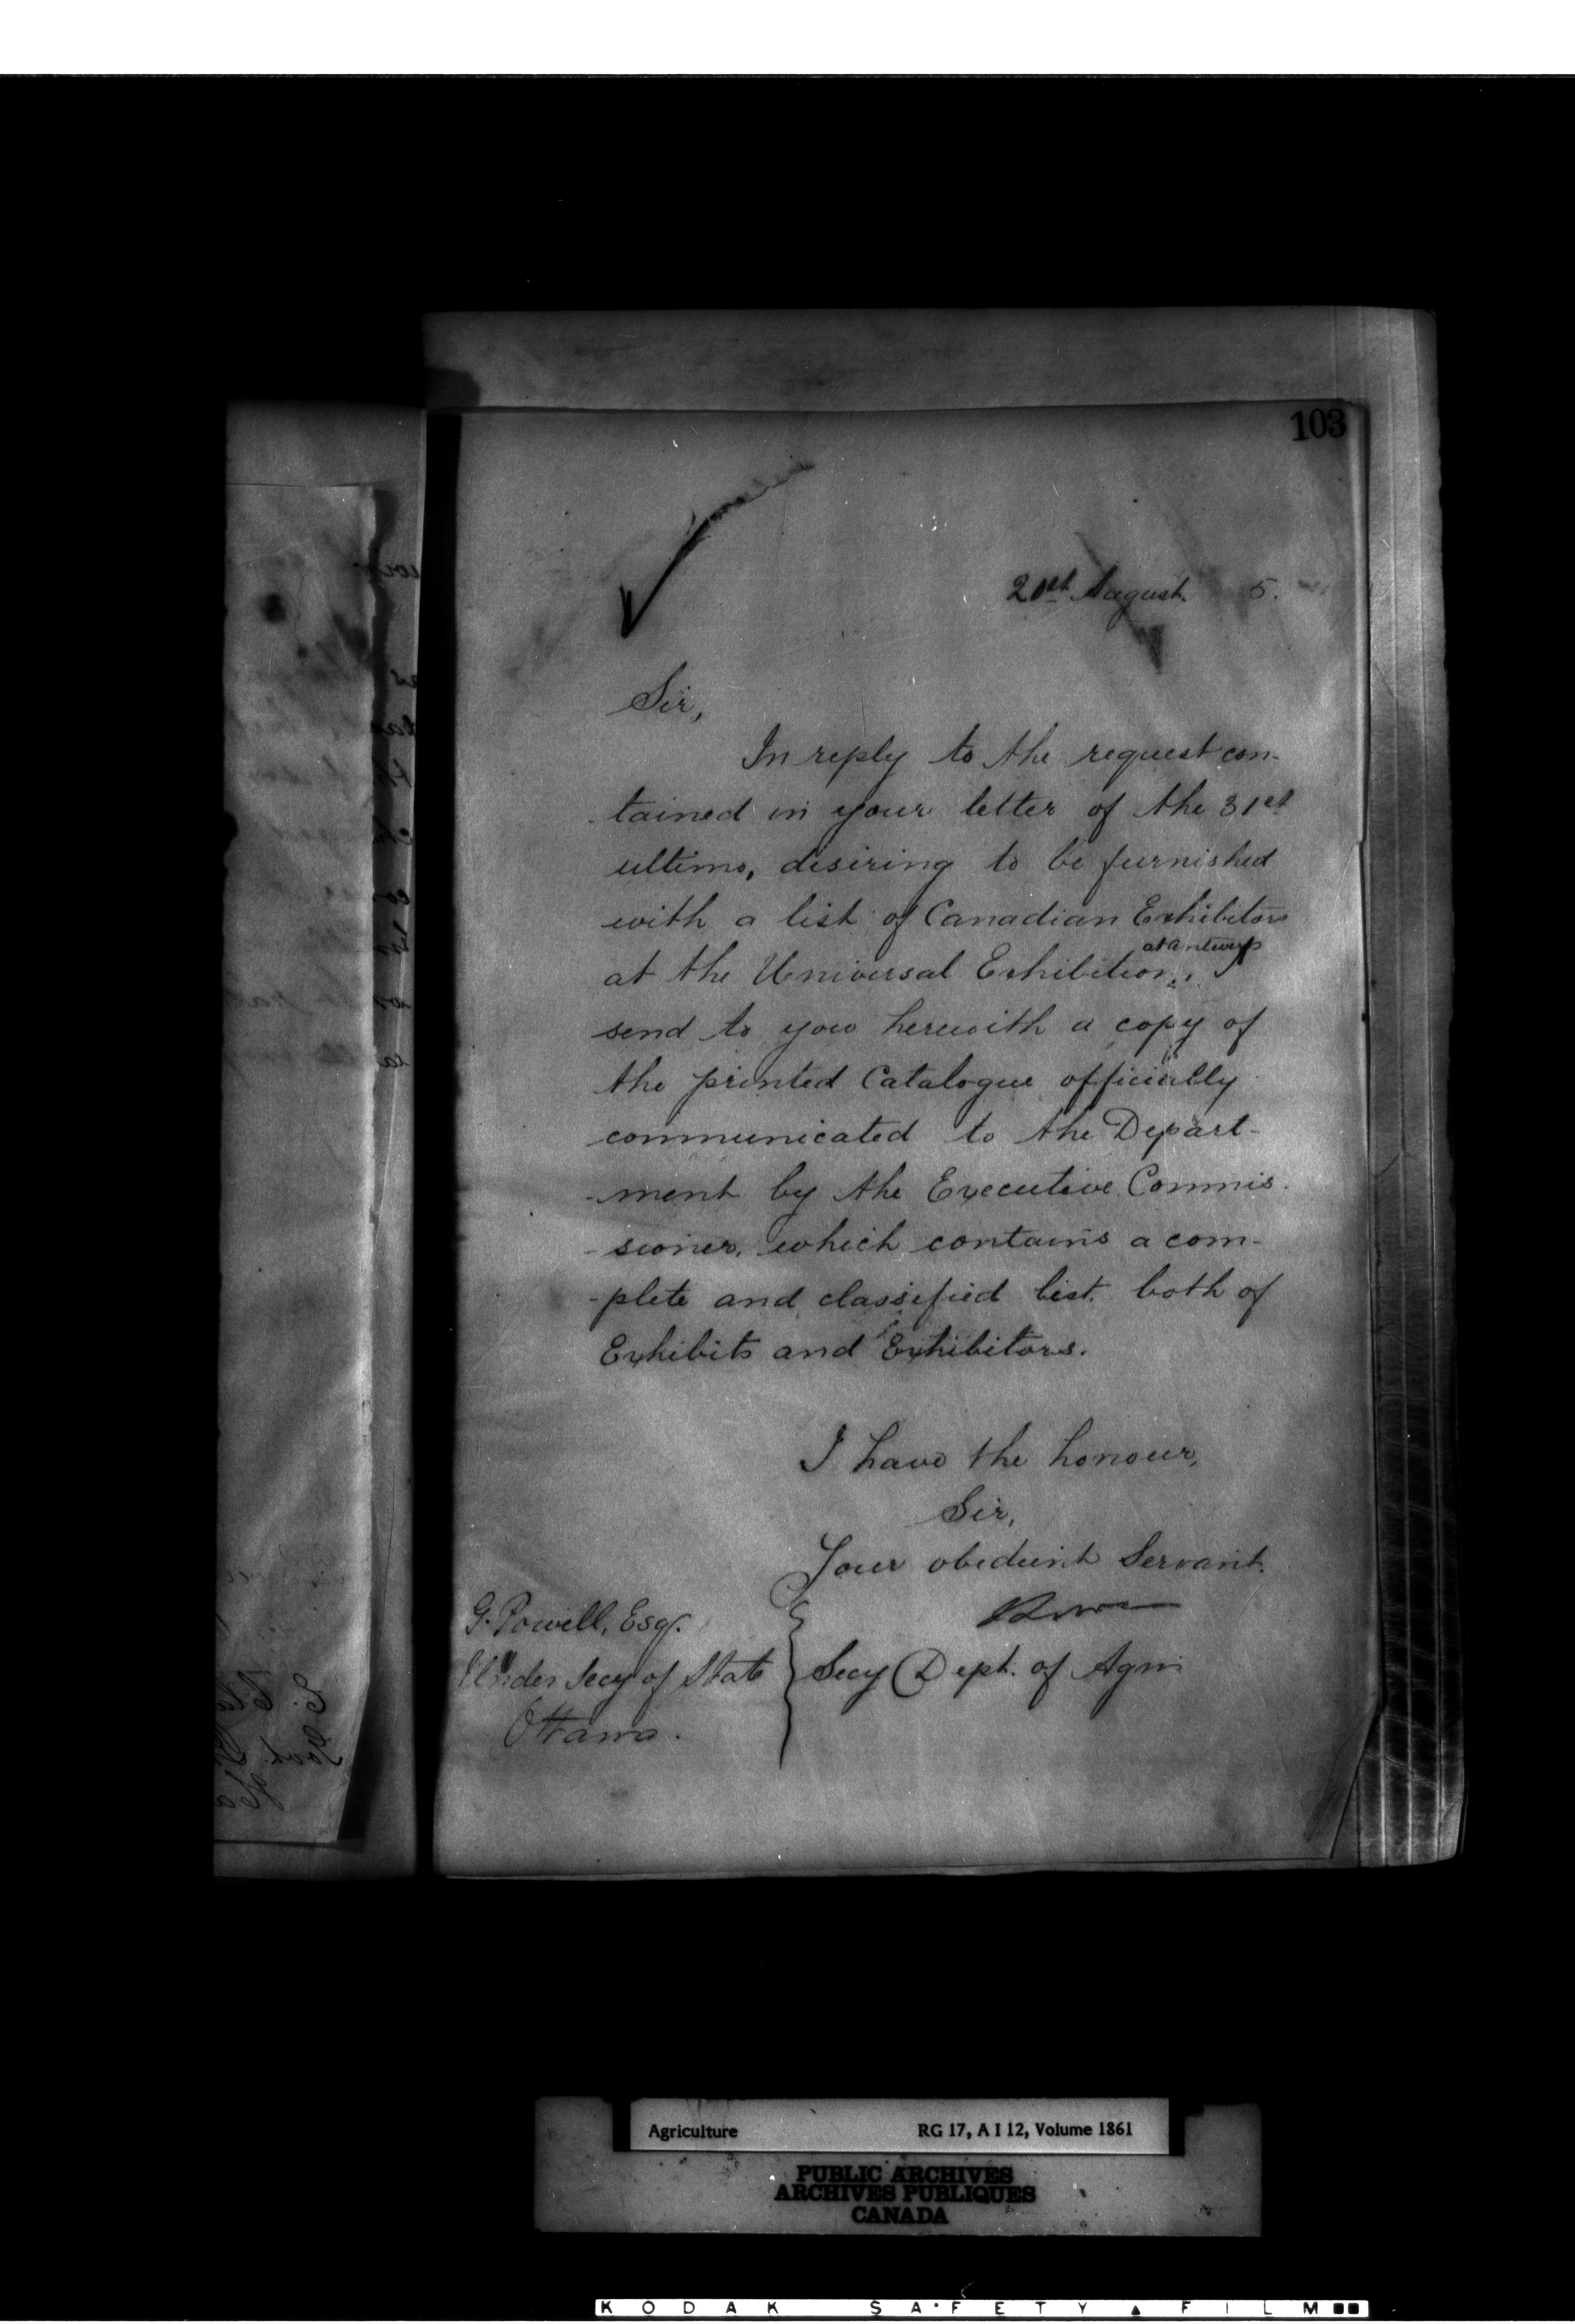 103
21st August 5.
Sir,
In reply to the request con-
tained in your letter of the 31st
ultimo, desiring to be furnished
with a list of Canadian Exhibitors
at Antwerp
at the Universal Exhibition, I
send to you herewith a copy of
the printed Catalogue officially
communicated to the Depart-
-ment by the Executive Commis-
-sioner, which contains a com-
-plete and classified list both of
Exhibits and Exhibitors.
I have the honour,
Sir,
Your obedient Servant.
G. Powell, Esqr.
Under Secy of State
Ottawa.
Secy Dept. of Agri
Agriculture RG 17, A I 12, Volume 1861
PUBLIC ARCHIVES
ARCHIVES PUBLIQUES
CANADA
KODAK SAFETY FILM